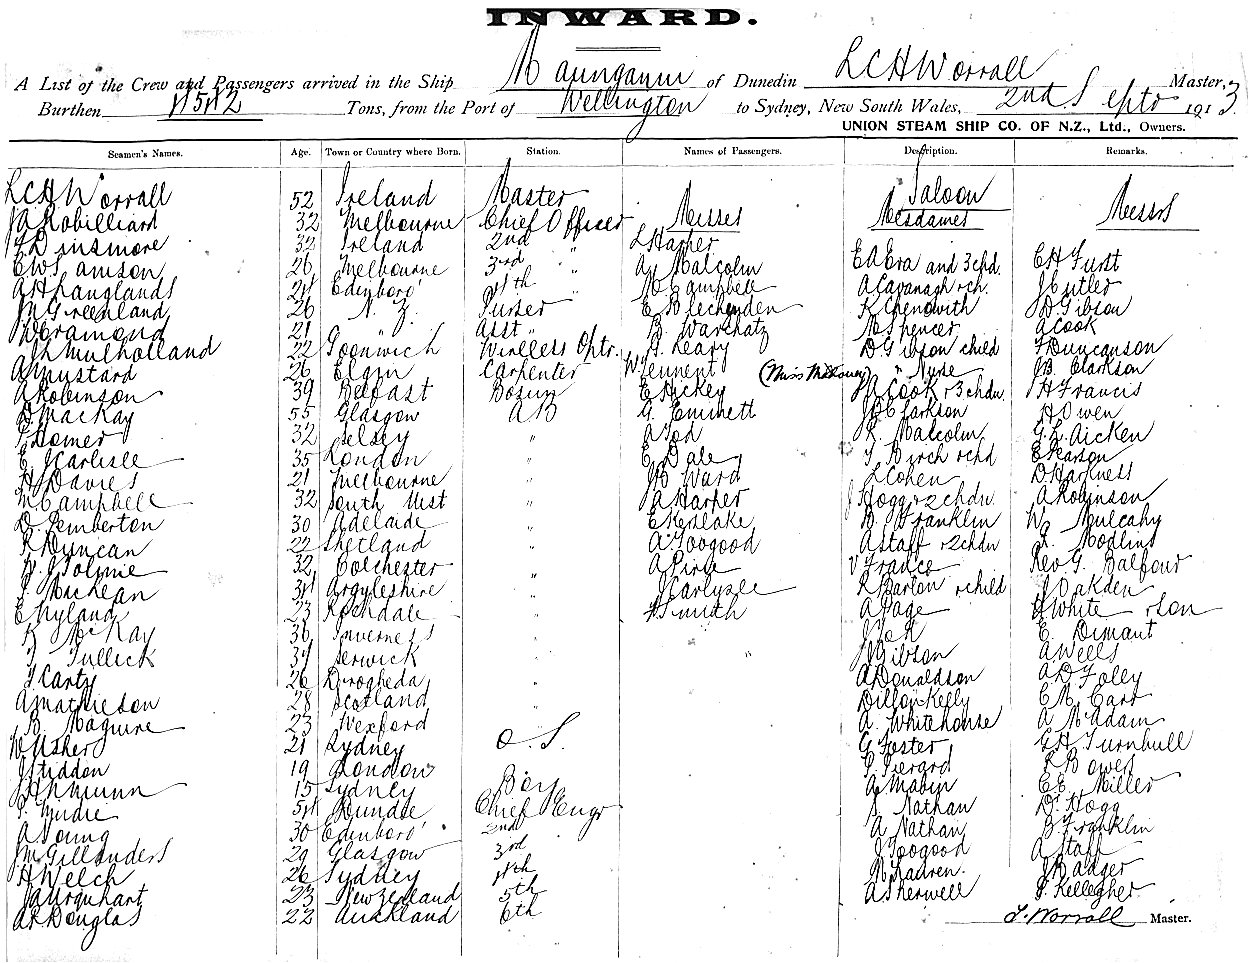 INWARD.
A List of the Crew and Passengers arrived in the Ship Maunganui of Dunedin LCHWorrall Master,
Burthen Tons, from the Port of Wellington to Sydney, New South Wales, 2nd Septr 1913
UNION STEAM SHIP CO. OF N.Z., Ltd., Owners.
Seamen's Names. Age. Town or Country where Born. Station. Names of Passengers. Description. Remarks.
LCHWorrall 52 Ireland Master Saloon
JARobilliard 32 Melbourne Chief Officer Misses Mesdames Messrs
Dinsmore 32 Ireland 2nd " L Harper
EWSamson 26 Melbourne 3rd " A Malcolm EAEra and 3chd. CH Furst
AHLanglands 24 Edinboro' 4th " M Campbell A Cavanagh + ch. J Cutler
JMGreenland 26 N. Z. Purser E Blechynden K Chenowith D Gibson
Dramond 21 " " Asst " B Warshatz M Spencer A Cook
Mulholland 22 Goonwich Wireless Optr. Leary D Gibson child J Duncanson
A Mustard 26 Elgin Carpenter W Tennent (Miss Mahoney) " Nurse JB Clarkson
A Robinson 39 Belfast Bosun E Hickey JA Cook + 3 chdn. H Francis
D Mackay 55 Glasgow AB G Emmett JB Clarkson H Owen
Homer 32 Selsey " A Tod Malcolm G.L. Aicken
E J Carlisle 35 London " E Dale J Birch + chd E Pearson
H Davies 21 Melbourne " B Ward L Cohen D Harkness
M Campbell 32 South Uist " A Harper J Hogg + 2 chdn A Robinson
D. Pemberton 30 Adelaide " E Kerslake B Franklin W Mulcahy
R Duncan 22 Shetland " A Toogood A Staff + 2chdn Modlins
W J Tolmie 32 Colchester " A Pirie V France Rev G. Balfour
J MacKean 34 Argyleshire " J Carlyzle R Barton + child J Oakden
E Hyland 23 Rochdale " Smith A Page H White + Son
McKay 36 Inverness " J Tok E. Dimant
Tullick 37 Lerwick " J Gibson A Wells
J Carty 26 Drogheda " A Donaldson A D Foley
A Mathieson 28 Scotland " Dillon Kelly E M Carr
B. Maguire 23 Wexford " A. Whitehouse A McAdam
W Usher 21 Sydney O.S. G Foster G H Turnbull
J Stiddon 19 London Pierard Bowes
JHMunn 15 Sydney Boy A Mabin E E Miller
Mudie 54 Dundee Chief Engr Nathan D. Hogg
A Young 30 Edinboro' 2nd A Nathan B Franklin
JM Gillanders 29 Glasgow 3rd J Toogood A Staff
H Welch 26 Sydney 4th J Badger
JA Urquhart 23 New Zealand 5th A Sherwell J. Kellegher
AR Douglas 22 Auckland 6th
L. Worrall Master.